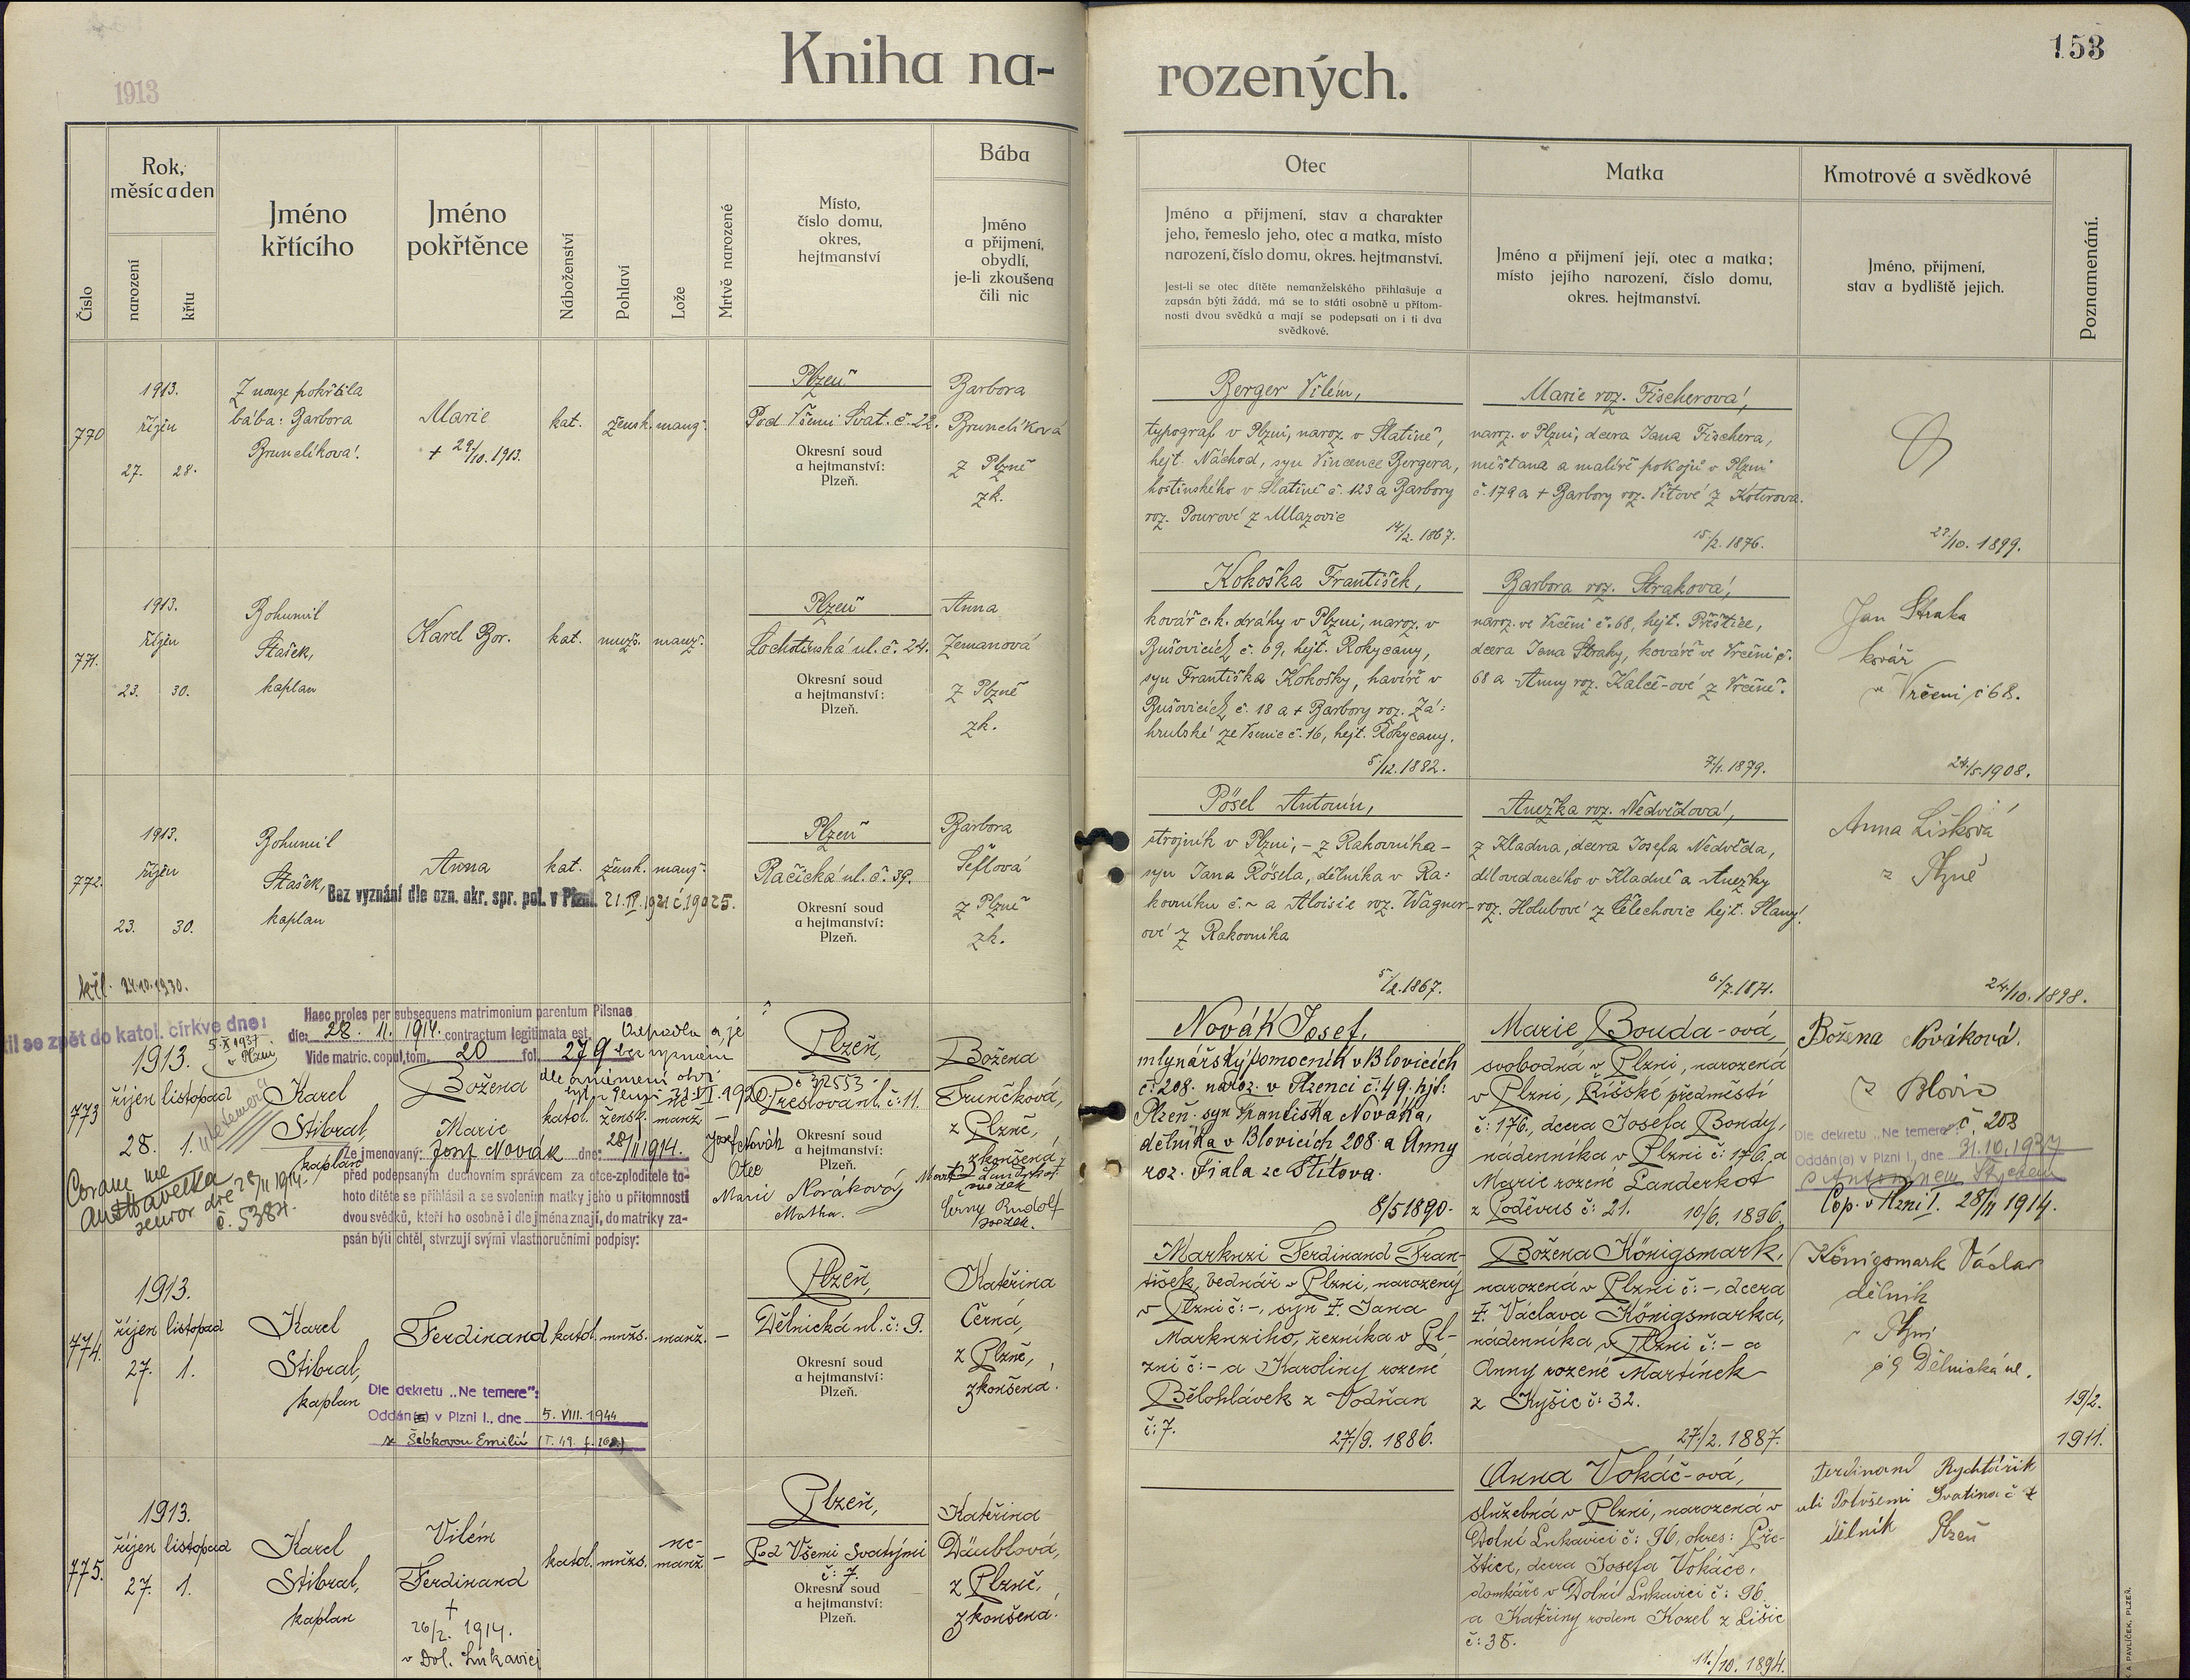 1913
Kniha na-
rozených.
153
Číslo
Rok,
měsíc a den
narození
křtu
Jméno
křtícího
Jméno
pokřtěnce
Náboženství
Pohlaví
Lože
Mrtvě narozené
Místo,
číslo domu,
okres,
hejtmanství
Bába
Jméno
a příjmení,
obydlí,
je-li zkoušena
čili nic
Otec
Jméno a příjmení, stav a charakter
jeho, řemeslo jeho, otec a matka, místo
narození, číslo domu, okres. hejtmanství.
Jest-li se otec dítěte nemanželského přihlašuje a
zapsán býti žádá, má se to státi osobně u přítom-
nosti dvou svědků a mají se podepsati on i ti dva
svědkové.
Matka
Jméno a příjmení její, otec a matka;
místo jejího narození, číslo domu,
okres. hejtmanství.
Kmotrové a svědkové
Jméno, příjmení,
stav a bydliště jejich.
Poznamenání.
770
1913.
říjen
27. 28.
Z nouze pokřtila
bába: Barbora
Brunclíková.
Marie
+ 29/10. 1913.
kat.
žensk.
manž.
Plzeň
Pod Všemi Svat. č. 22.
Okresní soud
a hejtmanství:
Plzeň.
Barbora
Brunclíková
z Plzně
zk.
Berger Vilém,
typograf v Plzni, naroz. v Slatině,
hejt. Náchod, syn Vincence Bergera,
hostinského v Slatině č. 123 a Barbory
roz. Pourové z Mlazovic
14/2. 1867.
Marie roz. Fischerová,
naroz. v Plzni, dcera Jana Fischera,
měšťana a malíře pokojů v Plzni
č. 179 a + Barbory roz. Vítové z Koterova.
15/2. 1876.
23/10. 1899.
771.
1913.
říjen
23. 30.
Bohumil
Stašek,
kaplan
Karel Bor.
kat.
mužs.
manž.
Plzeň
Lochotínská ul. č. 24.
Okresní soud
a hejtmanství:
Plzeň.
Anna
Zemanová
z Plzně
zk.
Kokoška František,
kovář c. k. dráhy v Plzni, naroz. v
Bušovicích č. 69, hejt. Rokycany,
syn Františka Kokošky, havíře v
Bušovicích č. 18 a + Barbory roz. Zá-
hrubské ze Všenic č. 16, hejt. Rokycany.
5/12. 1882.
Barbora roz. Straková,
naroz. ve Vrčeni č. 68, hejt. Přeštice,
dcera Jana Straky, kováře ve Vrčeni č.
68 a Anny roz. Kalče-ové z Vrčeně.
7/1. 1879.
Jan Straka
kovář
v Vrčeni č 68.
24/5. 1908.
772.
1913.
říjen
23. 30.
Bohumil
Stašek,
kaplan
Anna
kat.
žensk.
manž.
Bez vyznání dle ozn. okr. spr. pol. v Plzni. 21. IV. 1921 č. 19025.
Plzeň
Račická ul. č. 39.
Okresní soud
a hejtmanství:
Plzeň.
Barbora
Šeflová
z Plzně
zk.
Pösel Antonín,
strojník v Plzni, – z Rakovníka –
syn Jana Pösela, dělníka v Ra-
kovníku č. ~ a Aloisie roz. Wagner-
ové z Rakovníka
5/2. 1867.
Anežka roz. Nedvědová,
z Kladna, dcera Josefa Nedvěda,
dělovedoucího v Kladně a Anežky
roz. Holubové z Třelechovic hejt. Slaný.
6/7. 1871.
Anna Lišková
z Plzně
24/10. 1898.
24.10.1930.
til se zpět do katol. církve dne:
5. X 1937
v Plzni
773
1913.
říjen listopad
28. 1.
Karel
Stibral,
kaplan
Božena
Marie
katol.
žensk.
ne
manž.
Haec proles per subsequens matrimonium parentum Pilsnae
die: 28. 11. 1914. contractum legitimata est.
Vide matric. copul. tom. 20 fol. 279
Odpadla a je
bez vyznání
Že jmenovaný: Josef Novák dne: 28/11 1914.
před podepsaným duchovním správcem za otce-zploditele to-
hoto dítěte se přihlásil a se svolením matky jeho u přítomnosti
dvou svědků, kteří ho osobně i dle jména znají, do matriky za-
psán býti chtěl, stvrzují svými vlastnoručními podpisy:
Coram me
senior dne 28/11 1914.
č. 5384.
Josef Novák
Otec
Marie Nováková
Matka.
svědek
Černý Rudolf
svědek.
Plzeň,
č 32553
Prešovská ul. č: 11.
Okresní soud
a hejtmanství:
Plzeň.
Božena
Frunčková,
z Plzně,
zkoušená.
Novák Josef,
mlynářský pomocník v Blovicích
č: 208. naroz. v Plzenci č: 49. hjt:
Plzeň. syn Františka Nováka,
dělníka v Blovicích 208 a Anny
roz. Fiala ze Štítova.
8/5 1890.
Marie Bouda-ová,
svobodná v Plzni, narozená
v Plzni, Říšské předměstí
č: 176, dcera Josefa Boudy,
nádenníka v Plzni č: 176 a
Marie rozené Landerkot
z Poděvus č: 21. 10/6. 1896.
Božena Nováková.
z Blovic
č. 208
Dle dekretu „Ne temere":
Oddán(a) v Plzni I., dne 31.10.1937
s Antonínem
Cop. v Plzni I. 28/11 1914.
774.
1913.
říjen listopad
27. 1.
Karel
Stibral,
kaplan
Ferdinand
katol.
mužs.
manž.
–
Dle dekretu „Ne temere":
Oddán(a) v Plzni I., dne 5. VIII. 1944
s Šebkovou Emilií (T. 49. f. 268.)
Plzeň,
Dělnická ul. č: 9.
Okresní soud
a hejtmanství:
Plzeň.
Kateřina
Černá,
z Plzně,
zkoušená.
Markuzi Ferdinand Fran-
tišek, bednář v Plzni, narozený
v Plzni č: –, syn Ŧ. Jana
Markuziho, řezníka v Pl-
zni č: – a Karoliny rozené
Bělohlávek z Vodňan
č: 7. 27/9. 1886.
Božena Königsmark,
narozená v Plzni č: –, dcera
Ŧ. Václava Königsmarka,
nádenníka v Plzni č: – a
Anny rozené Martínek
z Kyšic č: 32.
27/2. 1887.
Königsmark Václav
dělník
v Plzni
č 9 Dělnická ul.
19/2.
1911.
775.
1913.
říjen listopad
27. 1.
Karel
Stibral,
kaplan
Vilém
Ferdinand
†
26/2. 1914.
v Dol. Lukavici
katol.
mužs.
ne-
manž.
–
Plzeň,
Pod Všemi Svatými
č: 7.
Okresní soud
a hejtmanství:
Plzeň.
Kateřina
Däublová,
z Plzně,
zkoušená.
Anna Vokáč-ová,
služebná v Plzni, narozená v
Dolní Lukavici č: 96, okres: Pře-
štice, dcera Josefa Vokáče,
domkáře v Dolní Lukavici č: 96
a Kateřiny rodem Kozel z Lišic
č: 38.
11./10. 1894.
Ferdinand Rychtařik
dělník Plzeň